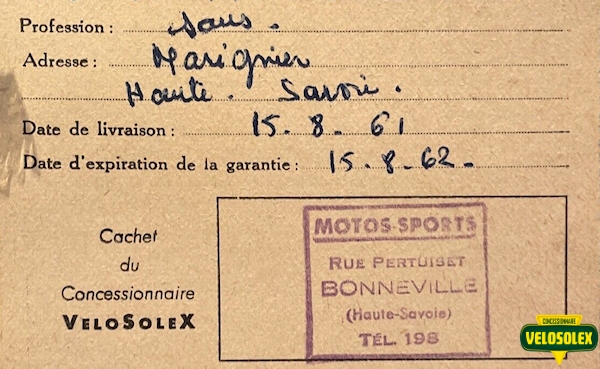 Profession : Sans.
Adresse : Marignier
Haute. Savoie.
Date de livraison : 15-8-61
Date d'expiration de la garantie : 15-8-62-
Cachet
du
Concessionnaire
VELOSOLEX
MOTOS-SPORTS
RUE PERTUISET
BONNEVILLE
(Haute-Savoie)
TÉL. 198
CONCESSIONNAIRE
VELOSOLEX